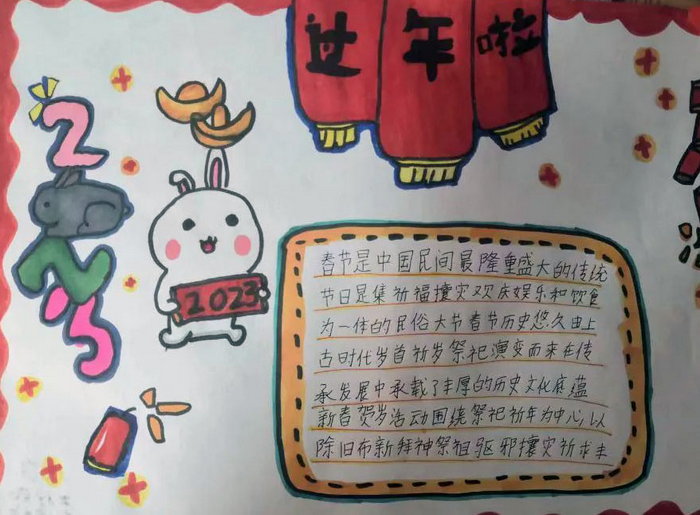 过年啦
2023
2023
春节是中国民间最隆重盛大的传统
节日是集祈福攘灾欢庆娱乐和饮食
为一体的民俗大节春节历史悠久由上
古时代岁首祈岁祭祀演变而来在传
承发展中承载了丰厚的历史文化底蕴
新春贺岁活动围绕祭祀祈年为中心以
除旧布新拜神祭祖驱邪攘灾祈求丰